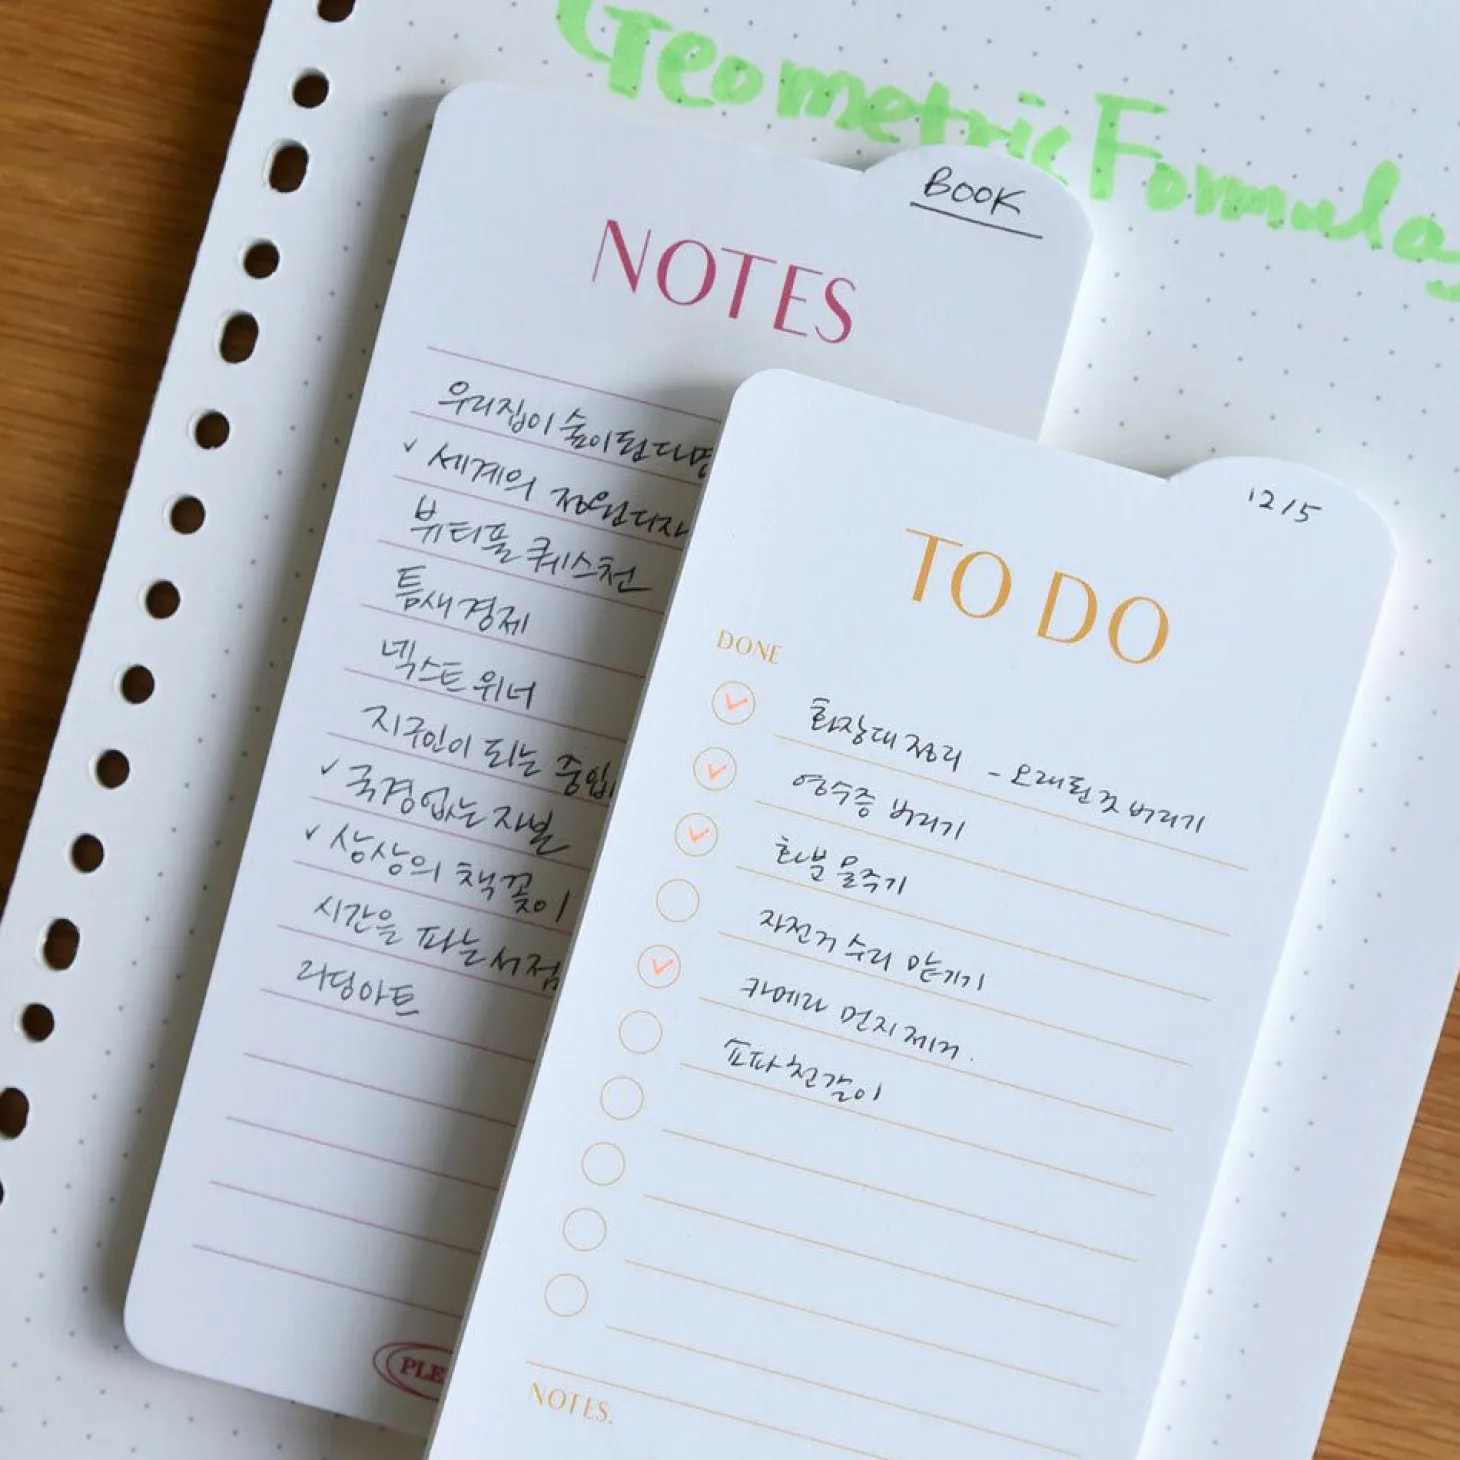 Geometric Formulas
BOOK
NOTES
우리집이 숲이 된다면
✓ 세계의 정원 디자
뷰티풀 퀘스천
틈새 경제
넥스트 위너
지구인이 되는 중입
✓ 국경없는 자본
✓ 상상의 책꽂이
시간을 파는 서점
리딩아트
PLE
12/5
TO DO
DONE
화장대 정리 - 오래된 것 버리기
영수증 버리기
화분 물주기
자전거 수리 맡기기
카메라 먼지 제거.
쇼파 천갈이
NOTES.